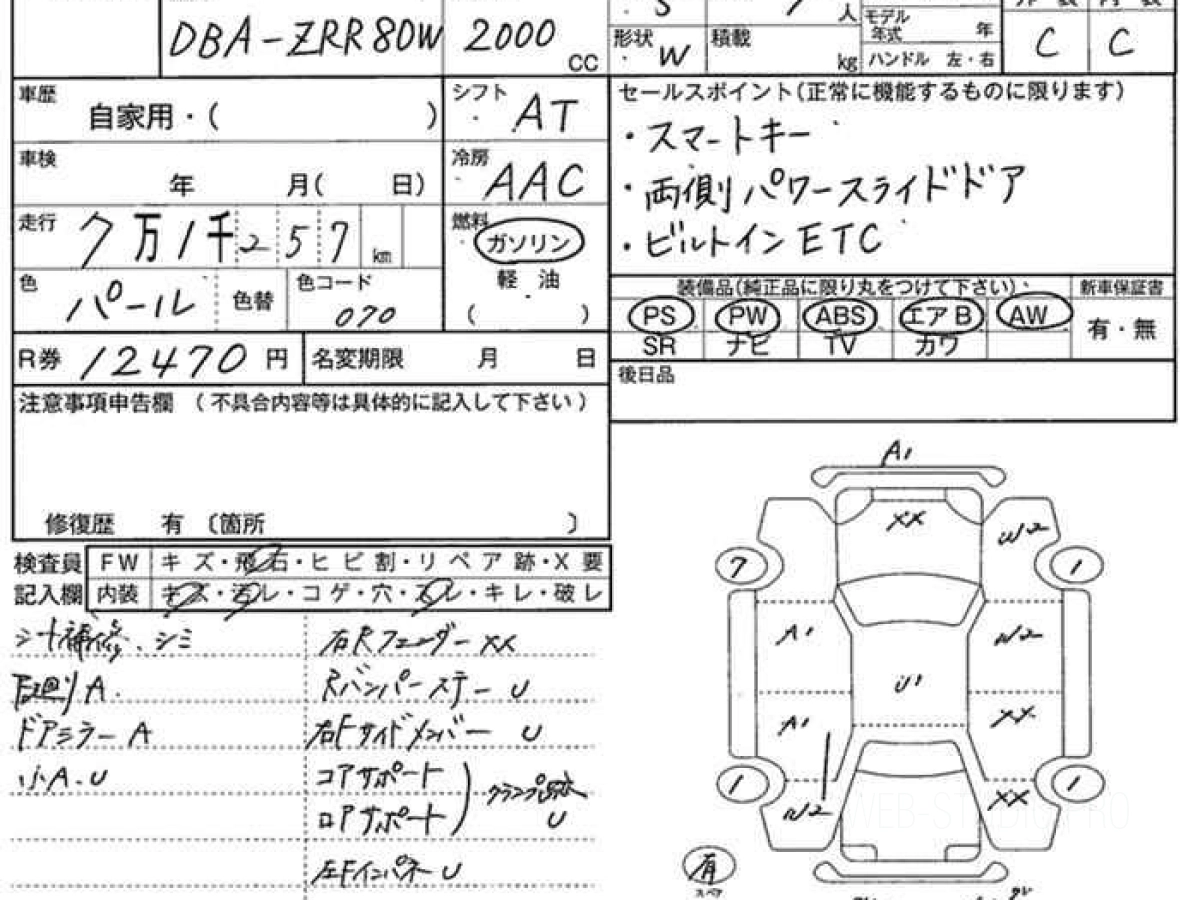 DBA-ZRR80W 2000 CC
人
形状 W 積載 kg
モデル年式 年
ハンドル 左・右
C C
車歴 自家用・( )
シフト AT
セールスポイント(正常に機能するものに限ります)
・スマートキー
・両側パワースライドドア
・ビルトインETC
車検 年 月( 日)
冷房 AAC
走行 7万1千257 km
燃料 ガソリン
軽 油
( )
色 パール 色替 色コード 070
装備品(純正品に限り丸をつけて下さい) 新車保証書
PS PW ABS エアB AW 有・無
SR ナビ TV カワ
R券 12470 円 名変期限 月 日
後日品
注意事項申告欄 (不具合内容等は具体的に記入して下さい)
修復歴 有 〔箇所 〕
検査員 FW キズ・飛石・ヒビ割・リペア跡・X要
記入欄 内装 キズ・汚レ・コゲ・穴・スレ・キレ・破レ
シート補修、シミ 右Rフェンダー XX
A. Rバンパーステー U
ドアミラー A 右Fサイドメンバー U
小A.U コアサポート
ロアサポート クランプ跡 U
左Fインパネ U
A1
XX W2
7 1
A1 W2
U1
A1 XX
1 1
W2 XX
有
スペア
WEB-STUDIO PRO